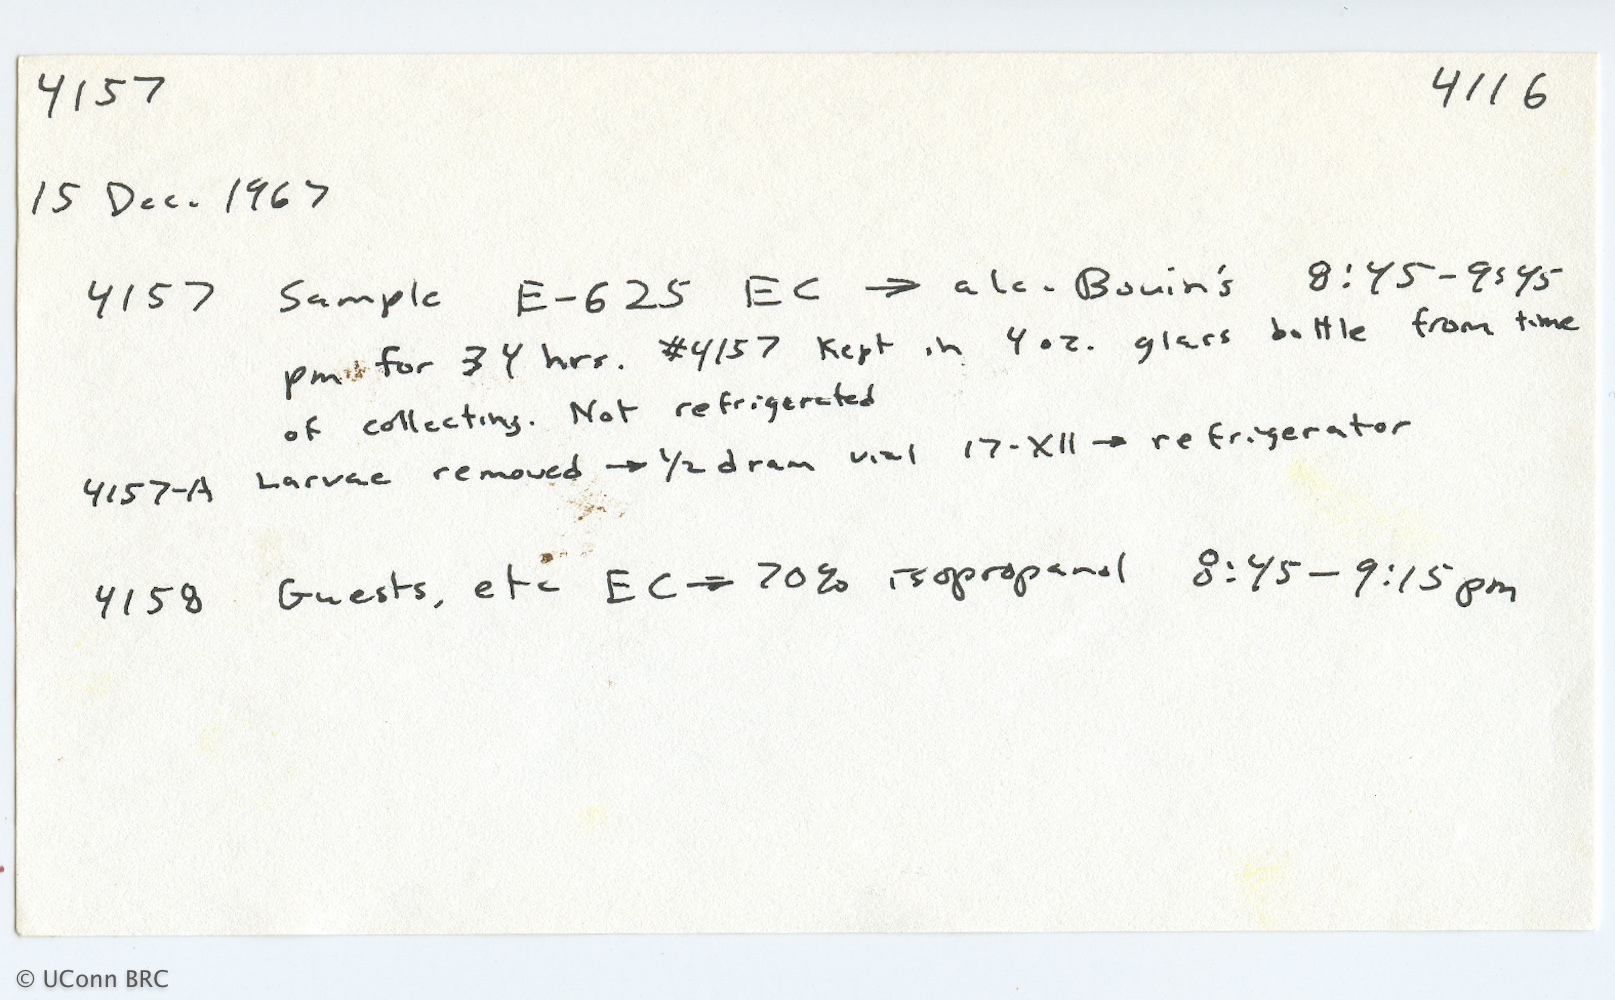 4157 4116
15 Dec. 1967
4157 Sample E-625 EC → alc. Bouin's 8:45-9:45
pm for 34 hrs. #4157 Kept in 4 oz. glass bottle from time
of collecting. Not refrigerated
4157-A Larvae removed → 1/2 dram vial 17-XII → refrigerator
4158 Guests, etc EC → 70% isopropanol 8:45-9:15 pm
© UConn BRC